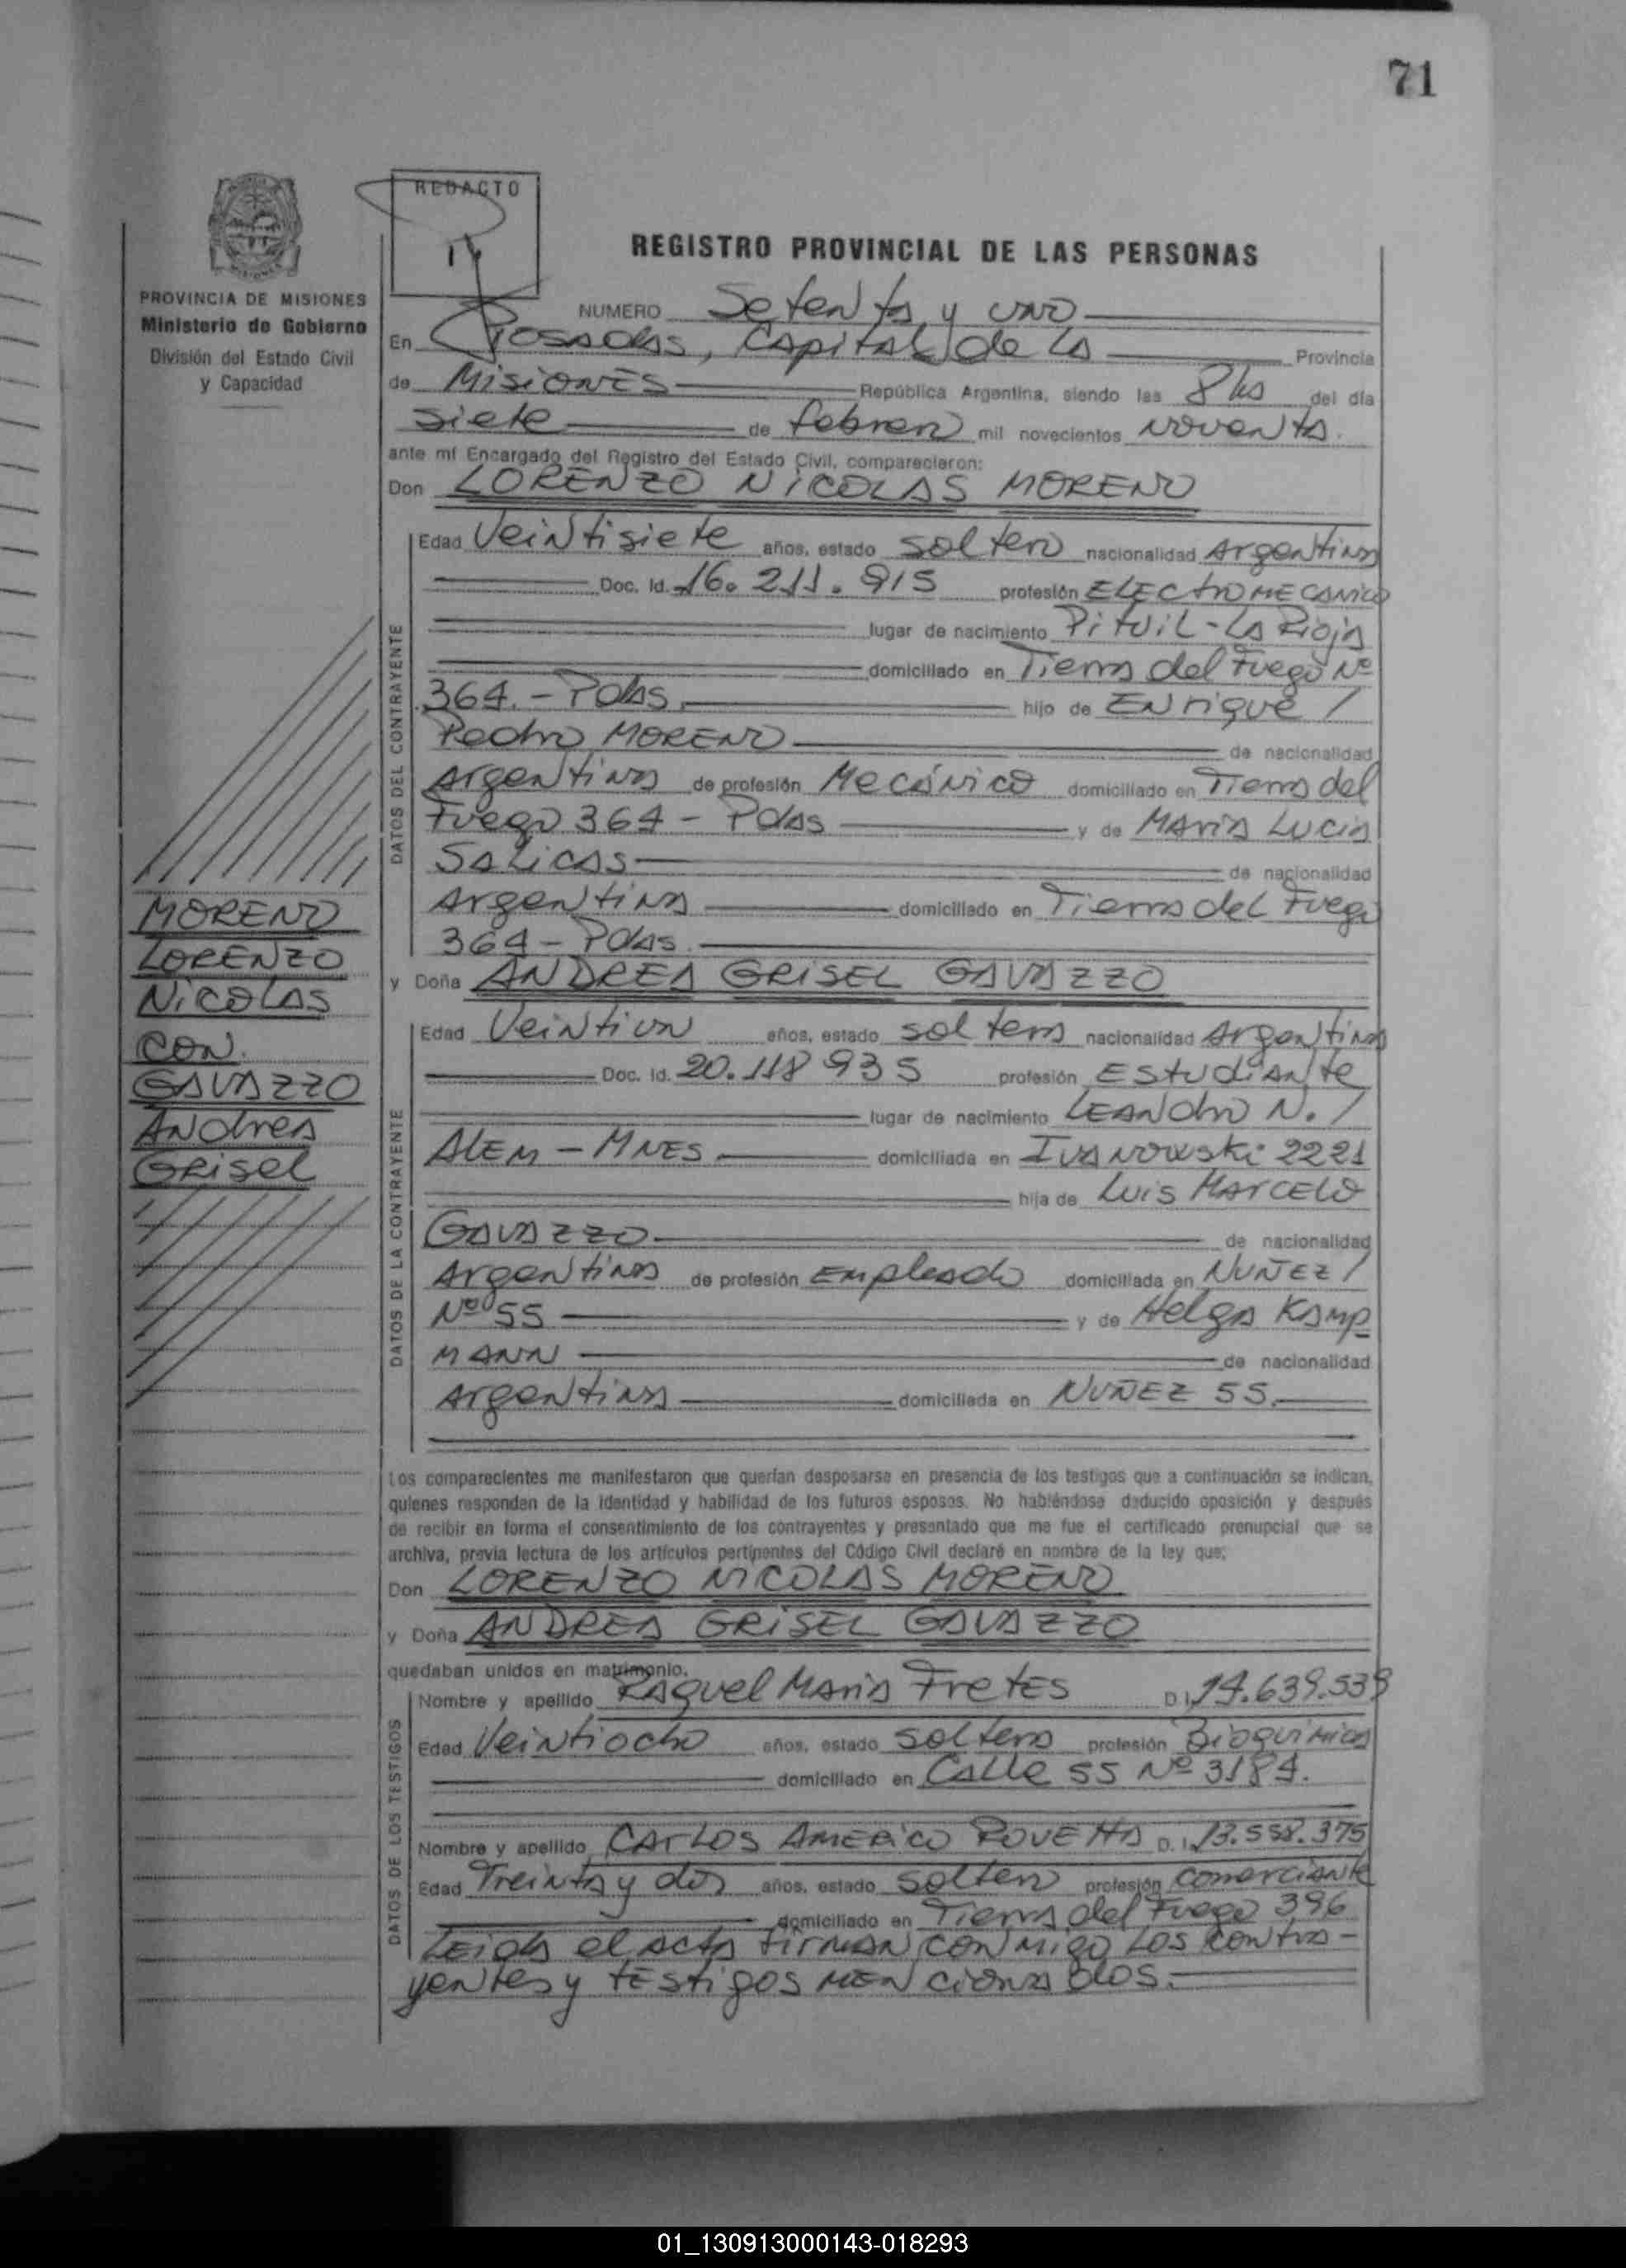 71
REDACTO
14
PROVINCIA DE MISIONES
Ministerio de Gobierno
División del Estado Civil
y Capacidad
REGISTRO PROVINCIAL DE LAS PERSONAS
NUMERO Setenta y uno
En Posadas, Capital de la Provincia
de Misiones República Argentina, siendo las 8 hs del día
siete de febrero mil novecientos noventa.
ante mí Encargado del Registro del Estado Civil, comparecieron:
Don LORENZO NICOLAS MORENO
DATOS DEL CONTRAYENTE
Edad Veintisiete años, estado soltero nacionalidad Argentina
Doc. Id. 16.211.915 profesión ELECTROMECANICO
lugar de nacimiento Pituil - La Rioja
domiciliado en Tierra del Fuego Nº
364.- Pdas. hijo de Enrique /
Pedro MORENO de nacionalidad
Argentina de profesión Mecánico domiciliado en Tierra del
Fuego 364 - Pdas y de MARIA LUCIA
SALICAS de nacionalidad
Argentina domiciliado en Tierra del Fuego
364 - Pdas.
y Doña ANDREA GRISEL GAVAZZO
MORENO
LORENZO
NICOLAS
CON
GAVAZZO
Andrea
Grisel
DATOS DE LA CONTRAYENTE
Edad Veintiun años, estado soltera nacionalidad Argentina
Doc. Id. 20.118 935 profesión Estudiante
lugar de nacimiento LEANDRO N. /
ALEM - MNES domiciliada en Ivanowski 2221
hija de Luis MARCELO
GAVAZZO de nacionalidad
Argentina de profesión Empleado domiciliada en NUÑEZ /
Nº 55 y de Helga Kamp
MANN de nacionalidad
Argentina domiciliada en NUÑEZ 55.
Los comparecientes me manifestaron que querían desposarse en presencia de los testigos que a continuación se indican,
quienes responden de la identidad y habilidad de los futuros esposos. No habiéndose deducido oposición y después
de recibir en forma el consentimiento de los contrayentes y presentado que me fue el certificado prenupcial que se
archiva, previa lectura de los artículos pertinentes del Código Civil declaré en nombre de la ley que:
Don LORENZO NICOLAS MORENO
y Doña ANDREA GRISEL GAVAZZO
quedaban unidos en matrimonio.
DATOS DE LOS TESTIGOS
Nombre y apellido Raquel Maria Fretes D.I. 14.639.539
Edad Veintiocho años, estado soltera profesión Bioquímica
domiciliado en Calle 55 Nº 3184.
Nombre y apellido CARLOS AMERICO ROVETTA D.I. 13.558.375
Edad Treinta y dos años, estado soltero profesión comerciante
domiciliado en Tierra del Fuego 396
Leida el acta firman conmigo los contra-
yentes y testigos mencionados.
01_130913000143-018293